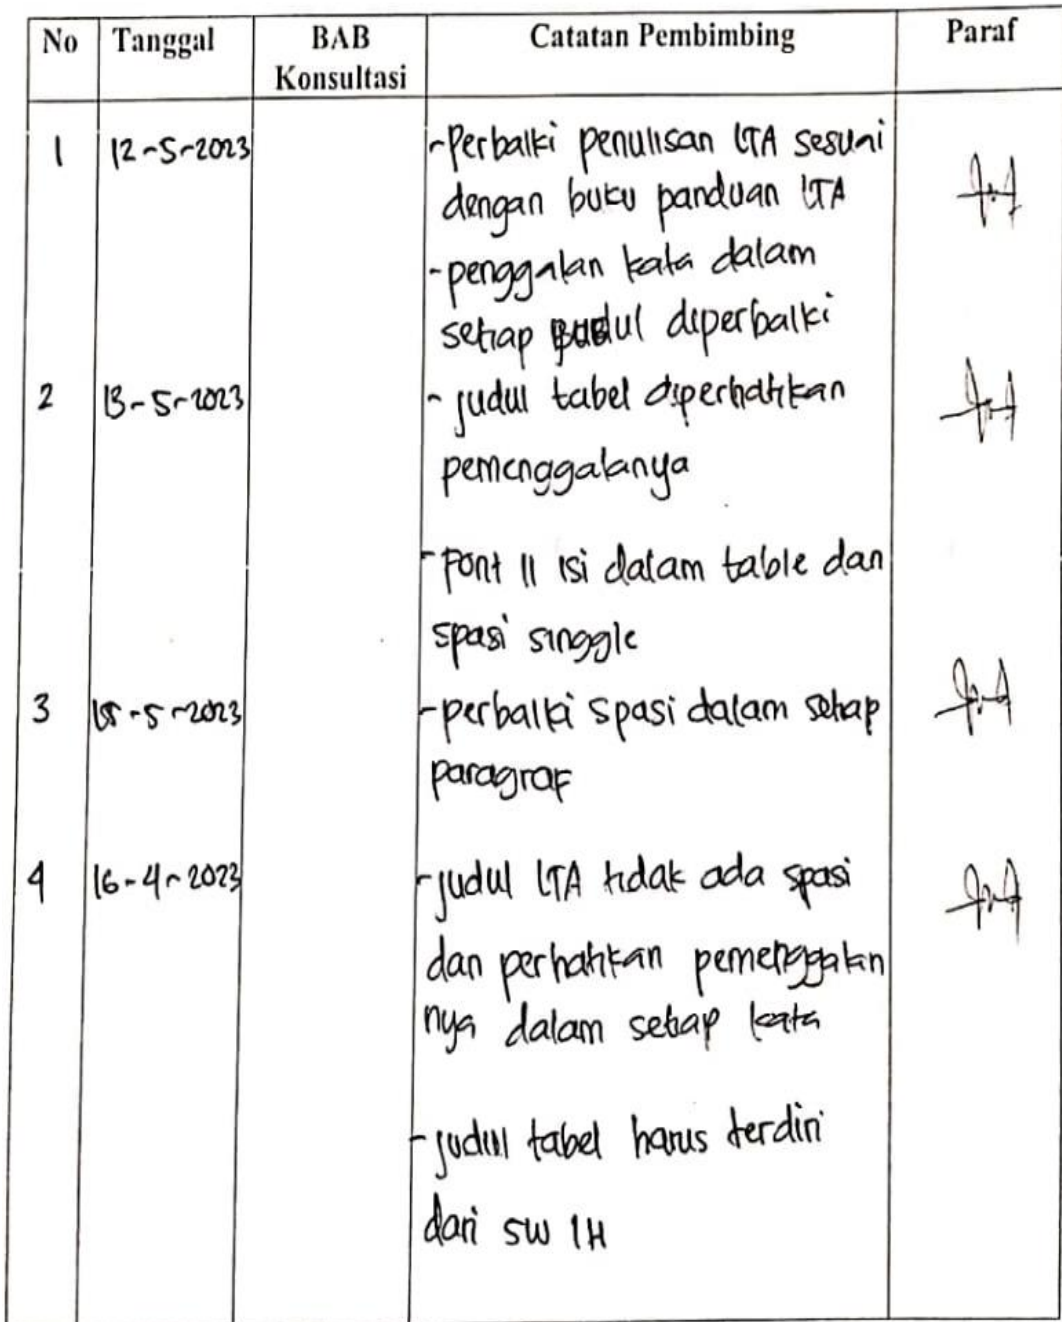 No Tanggal BAB Konsultasi Catatan Pembimbing Paraf
1 12-5-2023 - Perbaiki penulisan LTA sesuai
dengan buku panduan LTA
- penggalan kata dalam
setiap judul diperbaiki
2 13-5-2023 - judul tabel diperhatikan
pemenggalanya
- Font 11 isi dalam table dan
spasi singgle
3 15-5-2023 - perbaiki spasi dalam setiap
paragraf
4 16-4-2023 - judul LTA tidak ada spasi
dan perhatikan pemenggalan
nya dalam setiap kata
- judul tabel harus terdiri
dari 5W 1H